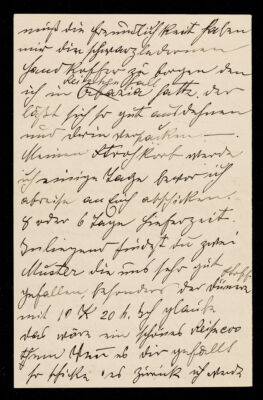 mußt die Freundlichkeit haben
mir den schwarzledernen
Handkoffer zu borgen den
ich in Abazia hatte, der
läßt sich so gut ausdehnen
und darin verpacken —.
Meinen Strohkorb werde
ich einige Tage bevor ich
abreise an Euch abschicken.
8 oder 6 Tage Lieferzeit.
Inliegend findest Du zwei
Muster die uns sehr gut
gefallen, besonders der dünnere
mit 10 K 20 h. Ich glaube
das wäre ein schönes
Wenn es dir gefällt
so schicke es zurück ich werde